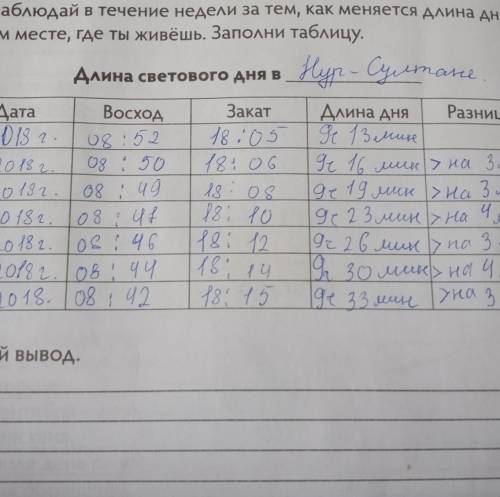 аблюдай в течение недели за тем, как меняется длина дн
м месте, где ты живёшь. Заполни таблицу.
Длина светового дня в Нур-Султане.
Дата Восход Закат Длина дня Разниц
018 г. 08:52 18:05 9ч 13 мин
018 г. 08:50 18:06 9ч 16 мин > на 3
018 г. 08:49 18:08 9ч 19 мин > на 3
018 г. 08:47 18:10 9ч 23 мин > на 4
018 г. 08:46 18:12 9ч 26 мин > на 3
018 г. 08:44 18:14 9ч 30 мин > на 4
018. 08:42 18:15 9ч 33 мин > на 3
й вывод.